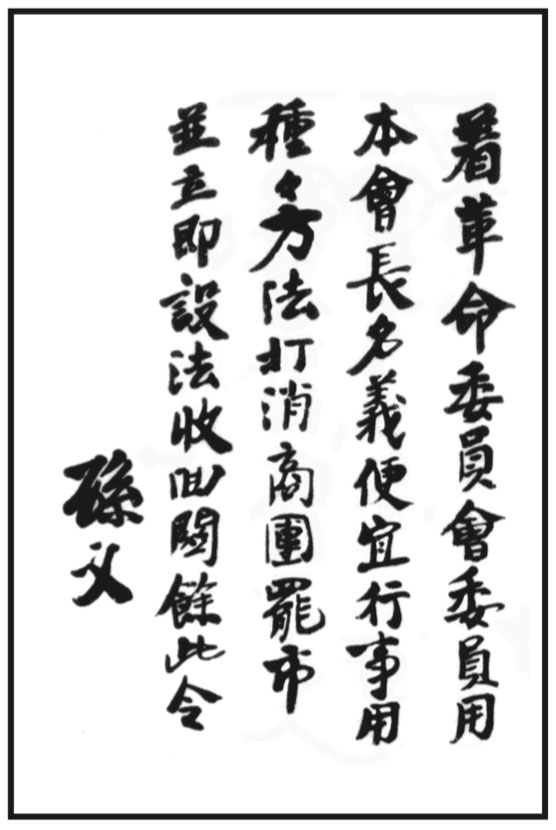 着革命委員會委員用
本會長名義便宜行事用
種々方法打消商團罷市
並立即設法收回關餘此令
孫文